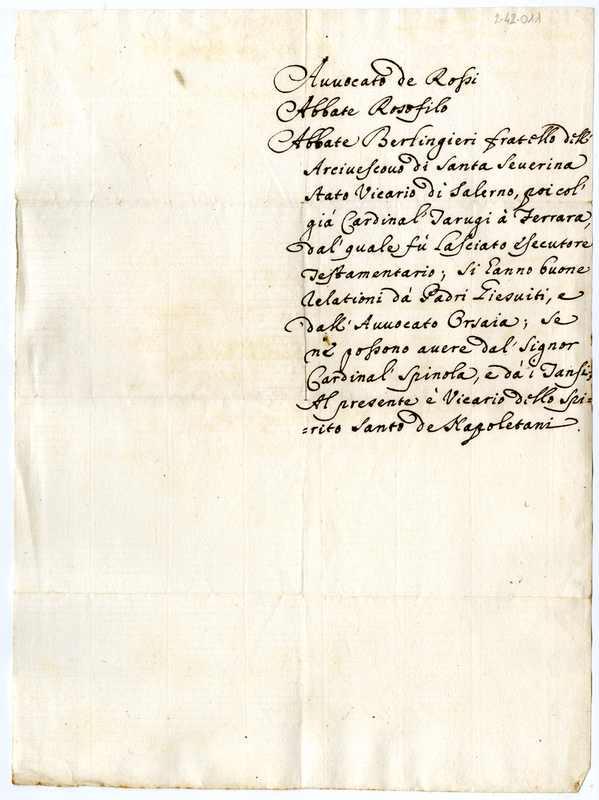 2-42-011
Auuocato de Rossi
Abbate Rosofilo
Abbate Berlingieri fratello dell'
Arciuescouo di Santa Seuerina
stato Vicario di Salerno, poi col'
già Cardinal' Tarugi à Ferrara,
dal' quale fù Lasciato esecutore
Testamentario; si hanno buone
relationi dà Padri Giesuiti, e
dall' Auuocato Orsaia; se
ne possono auere dal' Signor
Cardinal' Spinola, e dà i Tansi;
Al presente è Vicario dello Spi=
=rito Santo de Napoletani.